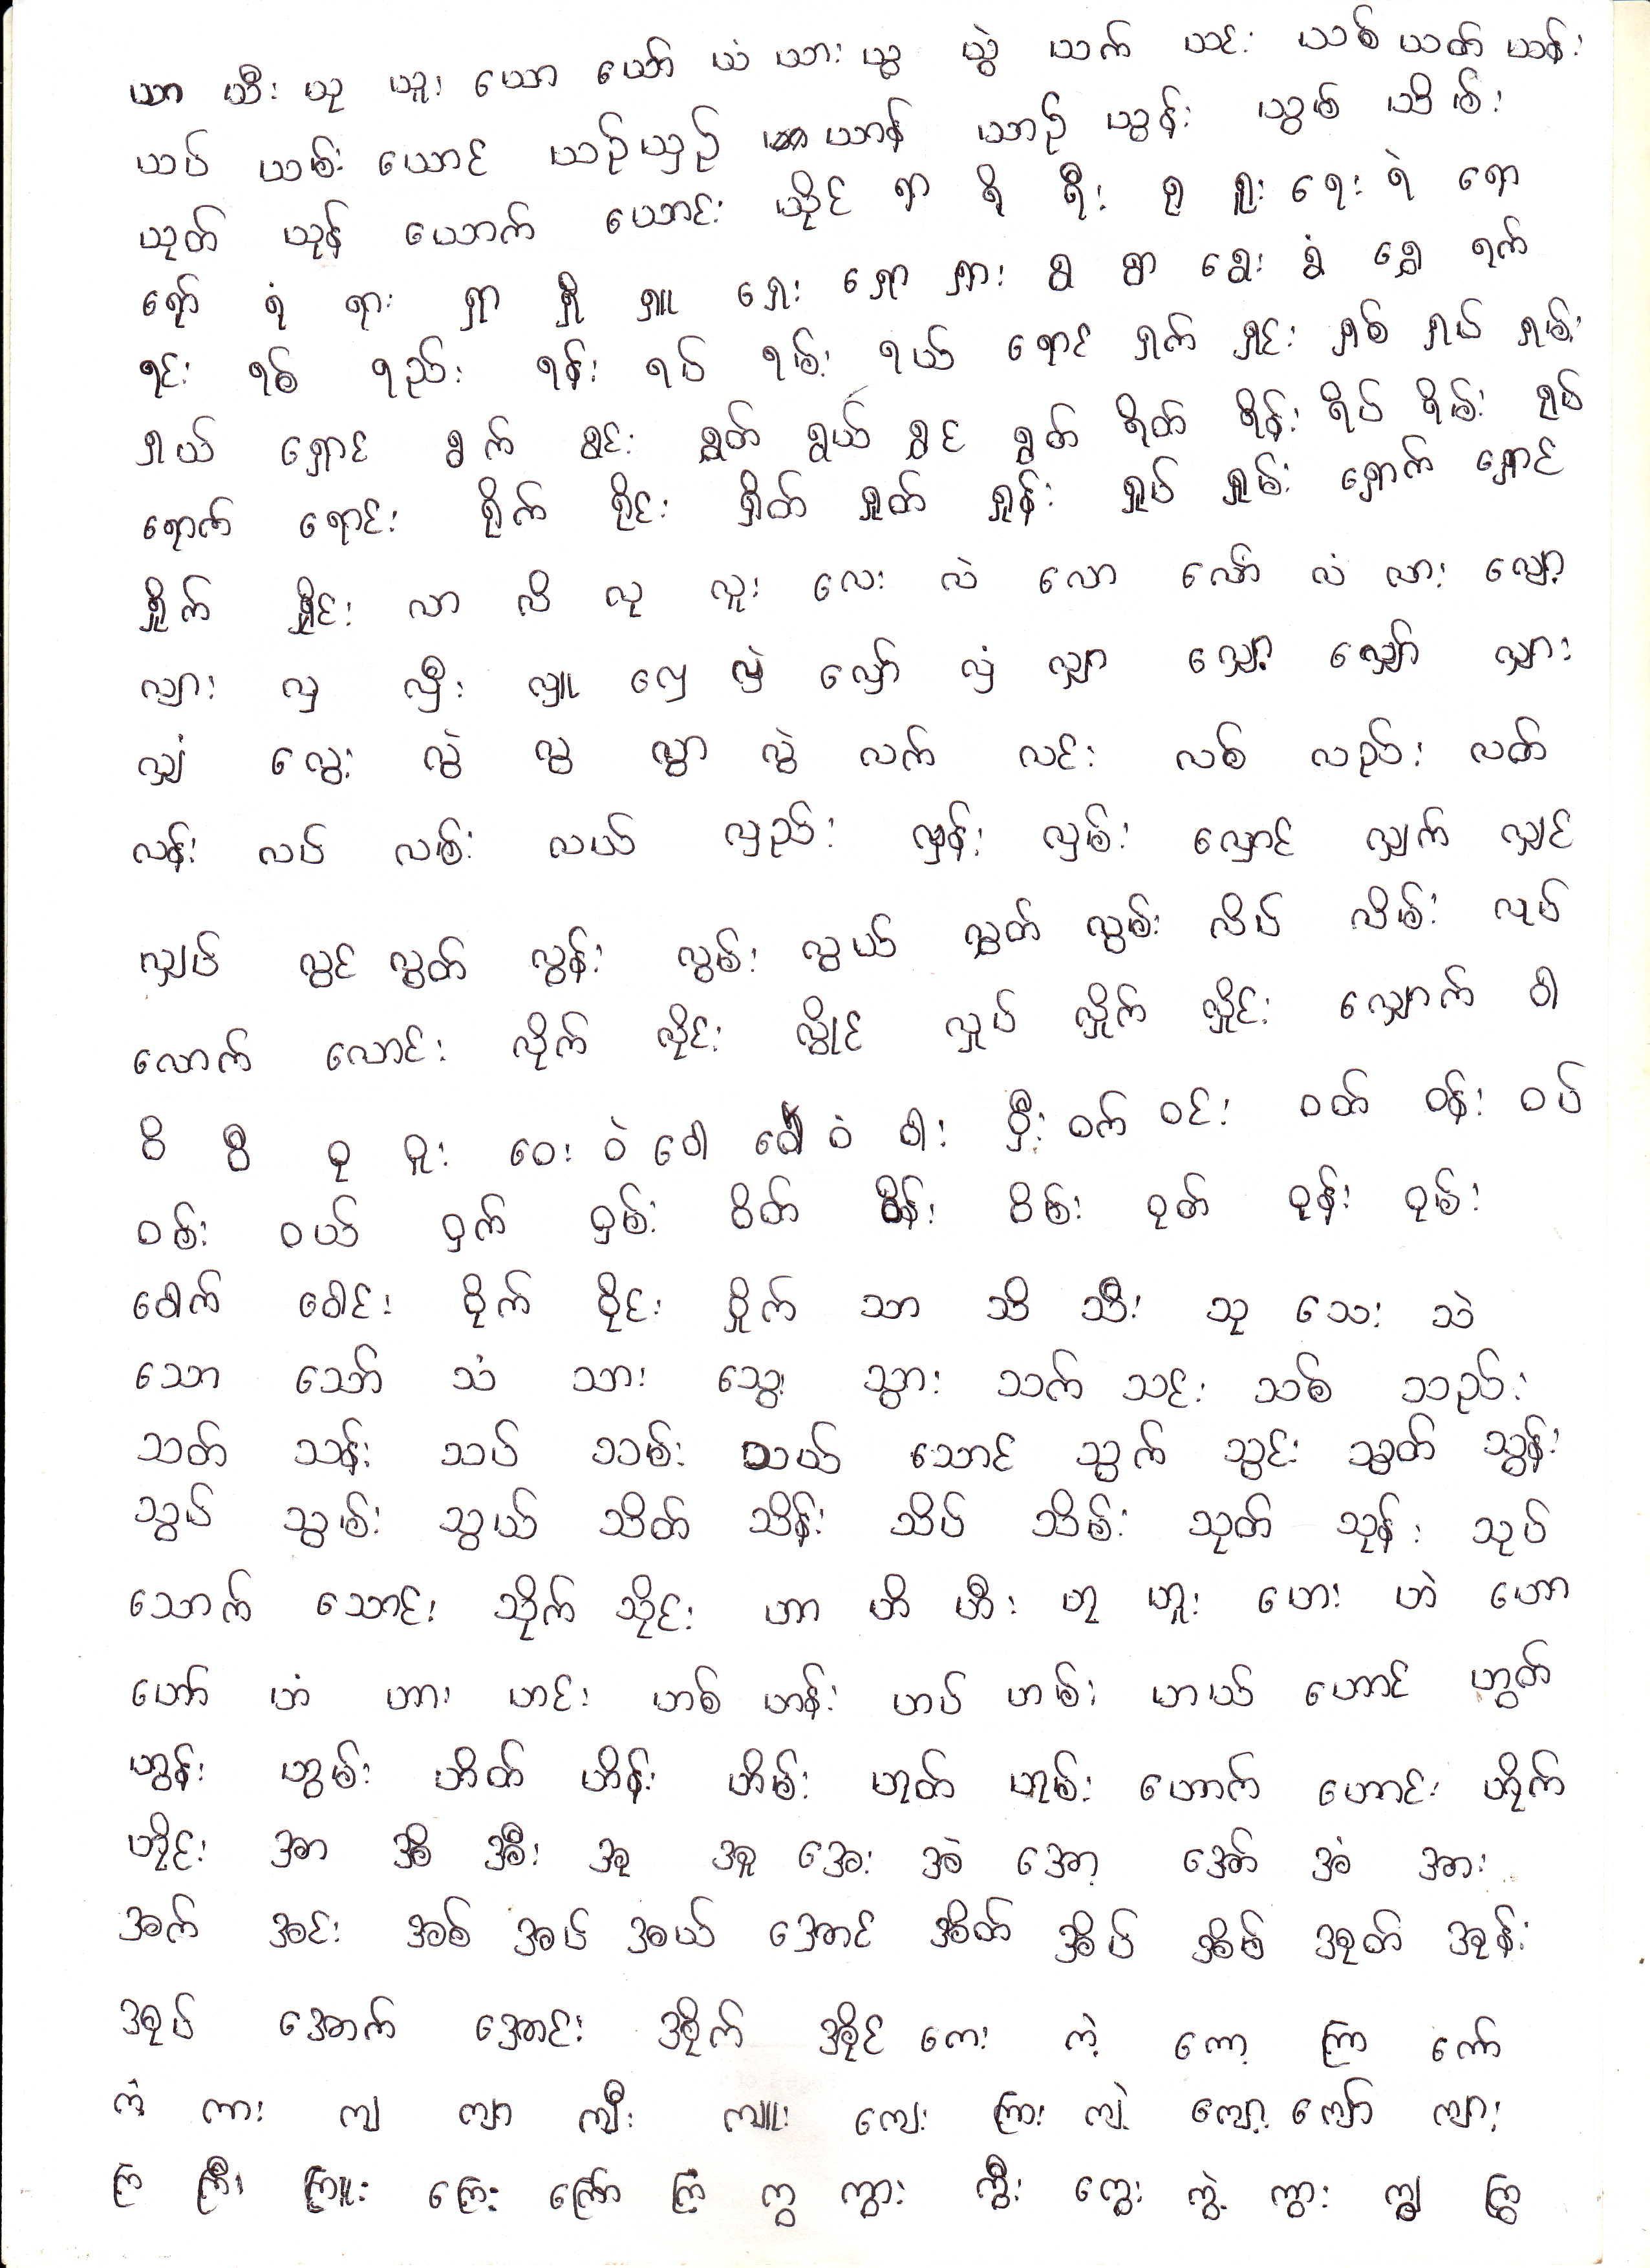 ယာ ယီး ယု ယူး ယော ယော် ယံ ယား ယွ ယွဲ ယက် ယင်း ယစ် ယတ် ယန်း
ယပ် ယမ်း ယောင် ယဉ် ယှဉ် ယာန် ယာဉ် ယွန်း ယွမ် ယိမ်း
ယုတ် ယုန် ယောက် ယောင်း ယိုင် ရာ ရိ ရီး ရု ရူး ရေး ရဲ ရော
ရော် ရံ ရား ရှာ ရှိ ရှူ ရှေး ရှော ရှား ရွ ရွာ ရွေး ရွံ ရွှေ ရက်
ရင်း ရစ် ရည်း ရန်း ရပ် ရမ်း ရယ် ရောင် ရှက် ရှင်း ရှစ် ရှပ် ရှမ်း
ရှယ် ရှောင် ရွက် ရွင်း ရွတ် ရွယ် ရွှင် ရွှတ် ရိတ် ရိန်း ရိပ် ရိမ်း ရုပ်
ရောက် ရောင်း ရိုက် ရိုင်း ရှိတ် ရှုတ် ရှုန်း ရှုပ် ရှုမ်း ရှောက် ရှောင်
ရှိုက် ရှိုင်း လာ လိ လု လူး လေး လဲ လော လော် လံ လား လျော့
လျား လှ လှီး လှူ လှေ လှဲ လှော် လှံ လျှာ လျှော့ လျှော် လျှား
လျှံ လွေး လွဲ လွ လွာ လွဲ လက် လင်း လစ် လည်း လတ်
လန်း လပ် လမ်း လယ် လှည်း လှန်း လှမ်း လှောင် လျှက် လျှင်
လျှပ် လွင် လွတ် လွန်း လွမ်း လွယ် လွှတ် လွမ်း လိပ် လိမ်း လုပ်
လောက် လောင်း လိုက် လိုင်း လှိုင် လှုပ် လှိုက် လှိုင်း လျှောက် ဝါ
ဝိ ဝီ ဝု ဝူး ဝေး ဝဲ ဝေါ ဝေါ် ဝံ ဝါး ဝှီး ဝက် ဝင်း ဝတ် ဝန်း ဝပ်
ဝမ်း ဝယ် ဝှက် ဝှမ်း ဝိတ် ဝိန်း ဝိမ်း ဝုတ် ဝုန်း ဝုမ်း
ဝေါက် ဝေါင်း ဝိုက် ဝိုင်း ဝှိုက် သာ သိ သီး သု သေး သဲ
သော သော် သံ သား သွေး သွား သက် သင်း သစ် သည်း
သတ် သန်း သပ် သမ်း သယ် သောင် သွက် သွင်း သွတ် သွန်း
သွပ် သွမ်း သွယ် သိတ် သိန်း သိပ် သိမ်း သုတ် သုန်း သုပ်
သောက် သောင်း သိုက် သိုင်း ဟာ ဟိ ဟီး ဟု ဟူး ဟေး ဟဲ ဟော
ဟော် ဟံ ဟား ဟင်း ဟစ် ဟန်း ဟပ် ဟမ်း ဟယ် ဟောင် ဟွတ်
ဟွန်း ဟွမ်း ဟိတ် ဟိန်း ဟိမ်း ဟုတ် ဟုမ်း ဟောက် ဟောင်း ဟိုက်
ဟိုင်း အာ အိ အီး အု အူ အေး အဲ အော့ အော် အံ အား
အက် အင်း အစ် အပ် အယ် အောင် အိတ် အိပ် အိမ် အုတ် အုန်း
အုပ် အောက် အောင်း အိုက် အိုင် ကေး ကဲ့ ကော့ ကြာ ကော်
ကံ့ ကား ကျ ကျာ ကျီး ကျူး ကျေး ကြား ကျဲ့ ကျော့ ကျော် ကျား
ကြဲ ကြီး ကြူး ကြေး ကြော် ကြံ့ ကွ ကွာ့ ကွီး ကွေး ကွဲ့ ကွား ကျွ ကြွ